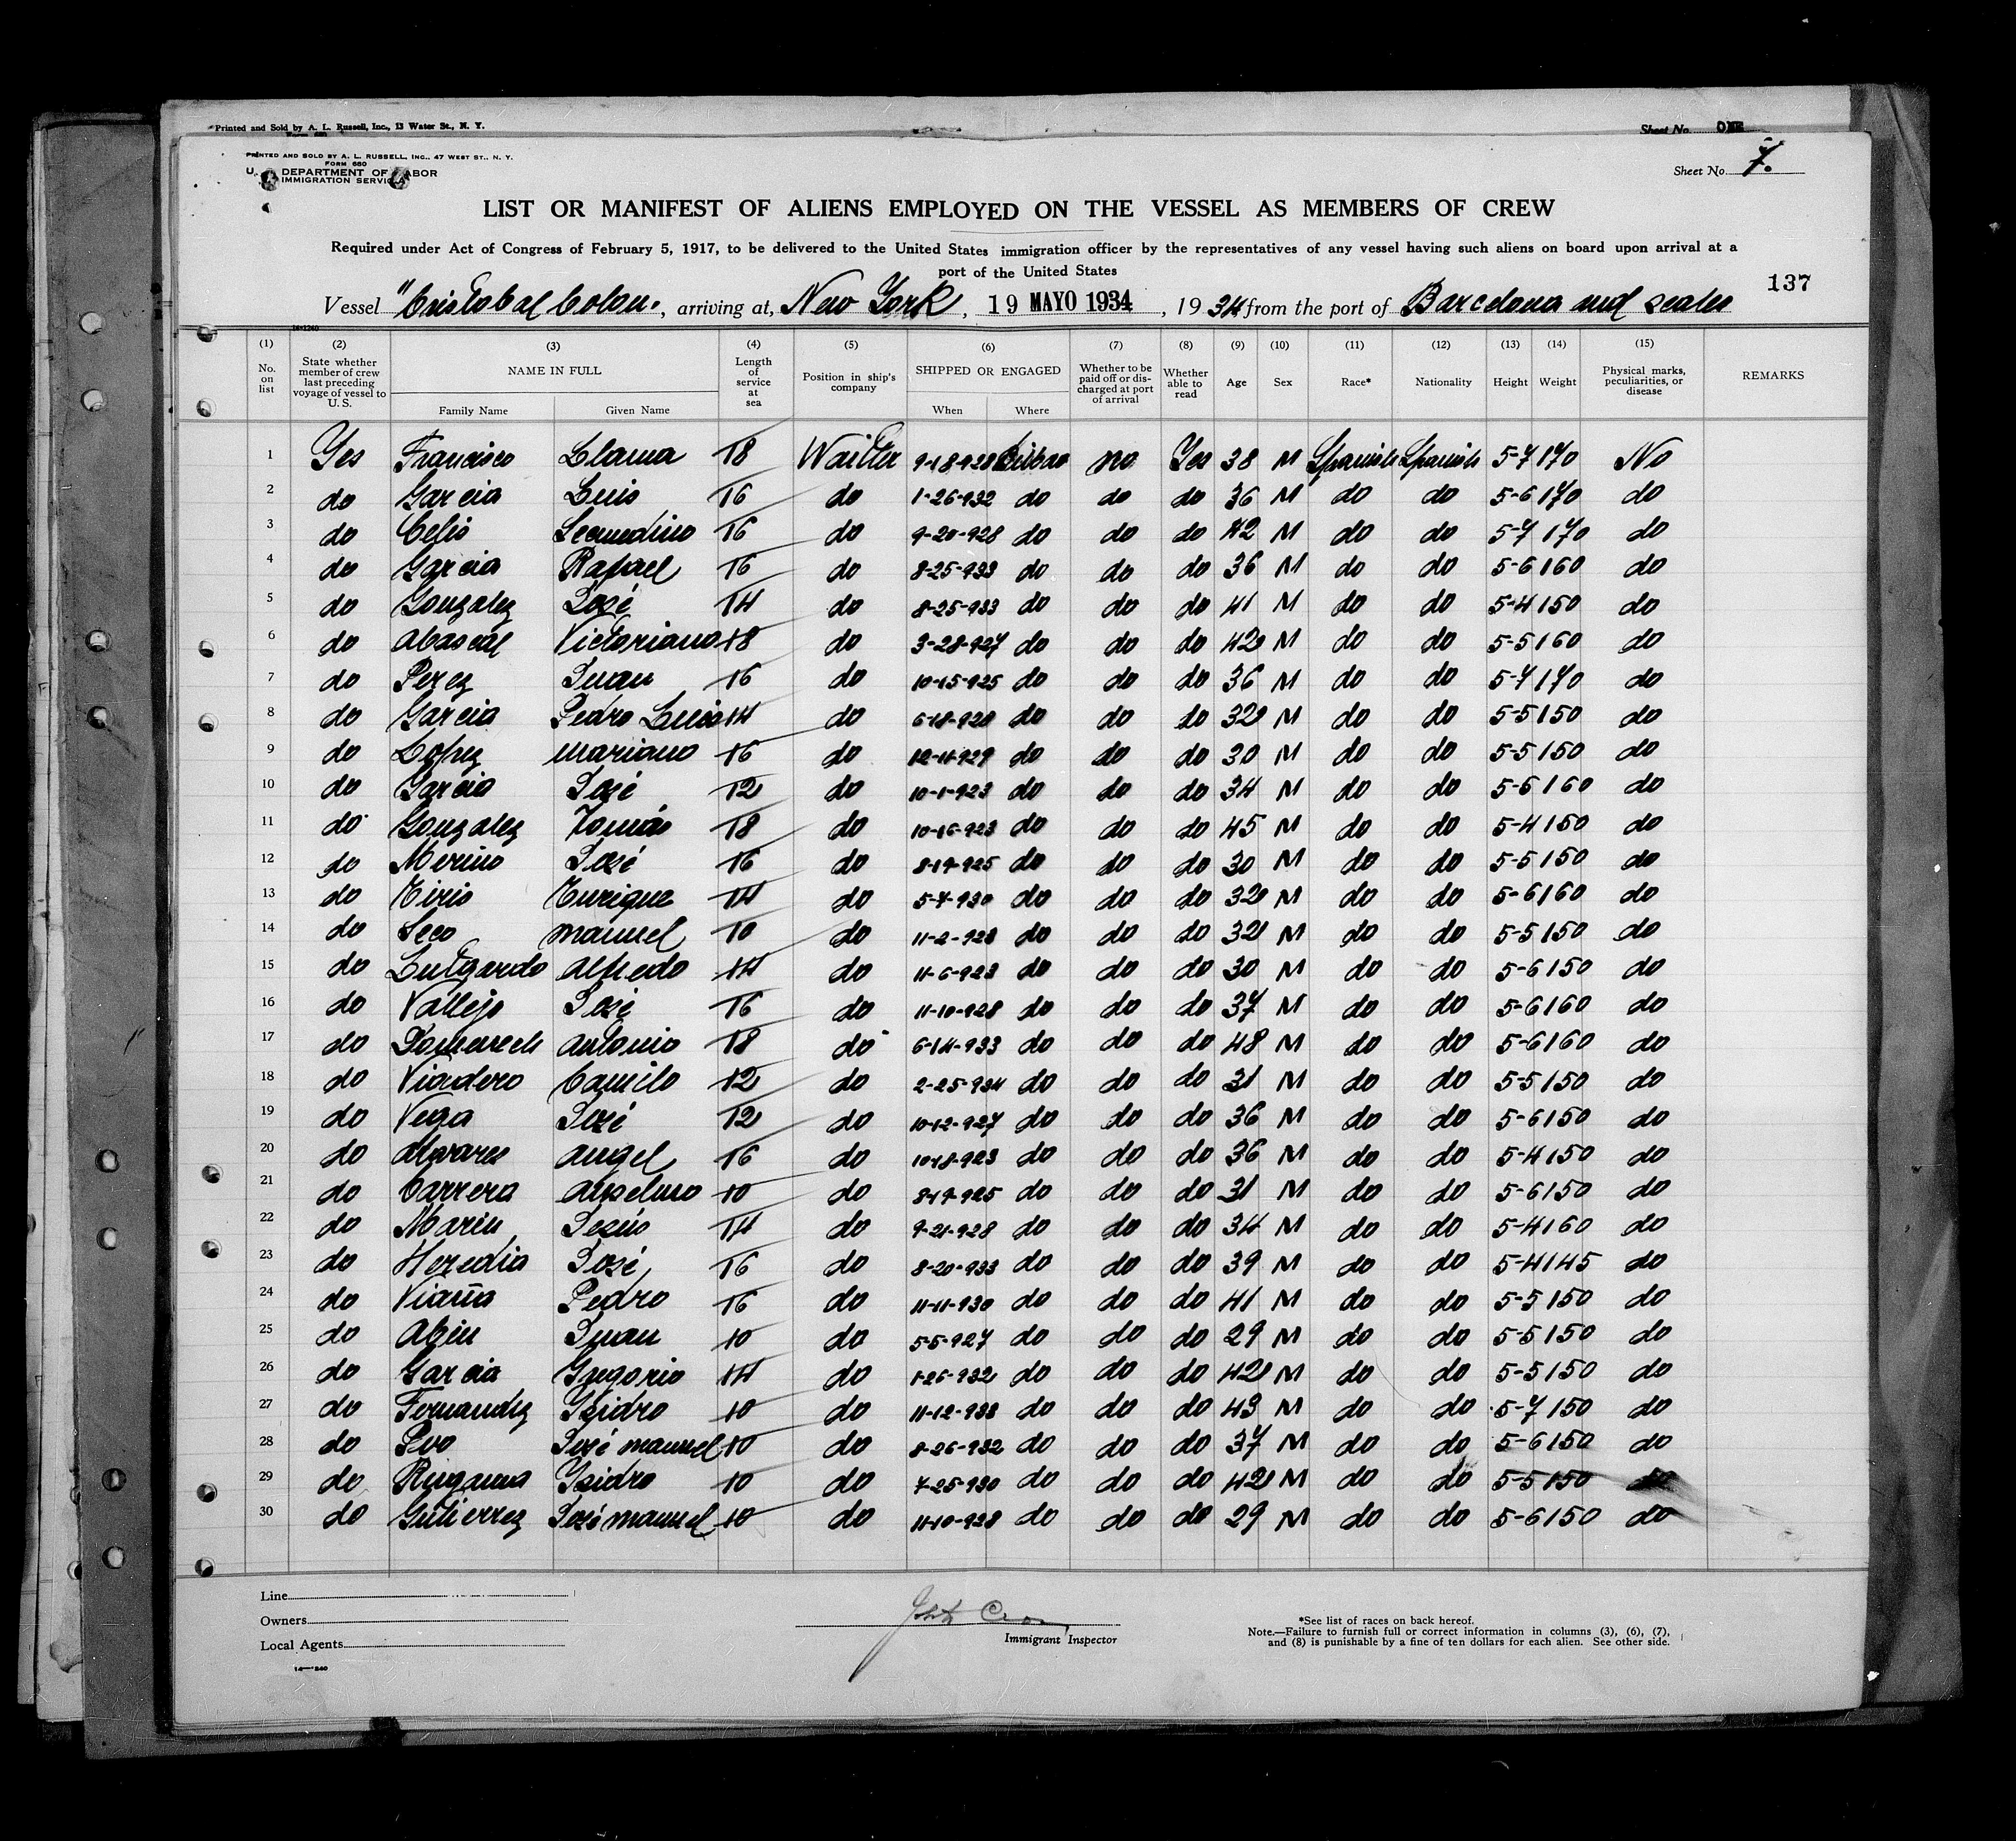 Printed and Sold by A. L. Russell, Inc., 13 Water St., N. Y.
Sheet No. ONE
PRINTED AND SOLD BY A. L. RUSSELL, INC., 47 WEST ST., N. Y.
FORM 680
U. S. DEPARTMENT OF LABOR
IMMIGRATION SERVICE
Sheet No. 7.
LIST OR MANIFEST OF ALIENS EMPLOYED ON THE VESSEL AS MEMBERS OF CREW
Required under Act of Congress of February 5, 1917, to be delivered to the United States immigration officer by the representatives of any vessel having such aliens on board upon arrival at a
port of the United States
137
Vessel "Cristobal Colon", arriving at, New York, 19 MAYO 1934, 1934 from the port of Barcelona and scales
(1) No. on list (2) State whether member of crew last preceding voyage of vessel to U. S. (3) NAME IN FULL Family Name Given Name (4) Length of service at sea (5) Position in ship's company (6) SHIPPED OR ENGAGED When Where (7) Whether to be paid off or discharged at port of arrival (8) Whether able to read (9) Age (10) Sex (11) Race* (12) Nationality (13) Height (14) Weight (15) Physical marks, peculiarities, or disease REMARKS
1 Yes Francisco Llama 18 Waitter 9-18-928 Bilbao no Yes 38 M Spanish Spanish 5-7 170 No
2 do Garcia Luis 16 do 1-26-932 do do do 36 M do do 5-6 170 do
3 do Celis Secundino 16 do 9-20-928 do do do 42 M do do 5-7 170 do
4 do Garcia Rafael 16 do 8-25-933 do do do 36 M do do 5-6 160 do
5 do Gonzalez José 14 do 8-25-933 do do do 41 M do do 5-4 150 do
6 do Abascal Victoriano 18 do 3-28-927 do do do 42 M do do 5-5 160 do
7 do Perez Juan 16 do 10-15-925 do do do 36 M do do 5-7 170 do
8 do Garcia Pedro Luis 14 do 6-18-928 do do do 32 M do do 5-5 150 do
9 do Lopez Mariano 16 do 12-11-929 do do do 30 M do do 5-5 150 do
10 do Garcia José 12 do 10-1-923 do do do 34 M do do 5-6 160 do
11 do Gonzalez Tomás 18 do 10-16-923 do do do 45 M do do 5-4 150 do
12 do Merino José 16 do 8-19-925 do do do 30 M do do 5-5 150 do
13 do Enrique 14 do 5-7-930 do do do 32 M do do 5-6 160 do
14 do Seco Manuel 10 do 11-2-928 do do do 32 M do do 5-5 150 do
15 do Lutgardo Alfredo 14 do 11-6-923 do do do 30 M do do 5-6 150 do
16 do Vallejo José 16 do 11-10-928 do do do 37 M do do 5-6 160 do
17 do Domenech Antonio 18 do 6-14-933 do do do 48 M do do 5-6 160 do
18 do Viadero Camilo 12 do 2-25-934 do do do 31 M do do 5-5 150 do
19 do Vega José 12 do 10-12-927 do do do 36 M do do 5-6 150 do
20 do Alvares Angel 16 do 10-18-923 do do do 36 M do do 5-4 150 do
21 do Carrera Anselmo 10 do 8-19-925 do do do 31 M do do 5-6 150 do
22 do Marin Jesús 14 do 9-21-928 do do do 34 M do do 5-4 160 do
23 do Heredia José 16 do 8-20-933 do do do 39 M do do 5-4 145 do
24 do Viaña Pedro 16 do 11-11-930 do do do 41 M do do 5-5 150 do
25 do Abin Juan 10 do 5-5-927 do do do 29 M do do 5-5 150 do
26 do Garcia Gregorio 14 do 1-26-932 do do do 42 M do do 5-5 150 do
27 do Fernandez Isidro 10 do 11-12-933 do do do 43 M do do 5-7 150 do
28 do José Manuel 10 do 8-26-932 do do do 37 M do do 5-6 150 do
29 do Ysidro 10 do 7-25-930 do do do 42 M do do 5-5 150 do
30 do Gutierrez José Manuel 10 do 11-10-928 do do do 29 M do do 5-6 150 do
Line
Owners
Local Agents
Immigrant Inspector
*See list of races on back hereof.
Note.—Failure to furnish full or correct information in columns (3), (6), (7),
and (8) is punishable by a fine of ten dollars for each alien. See other side.
14—1240